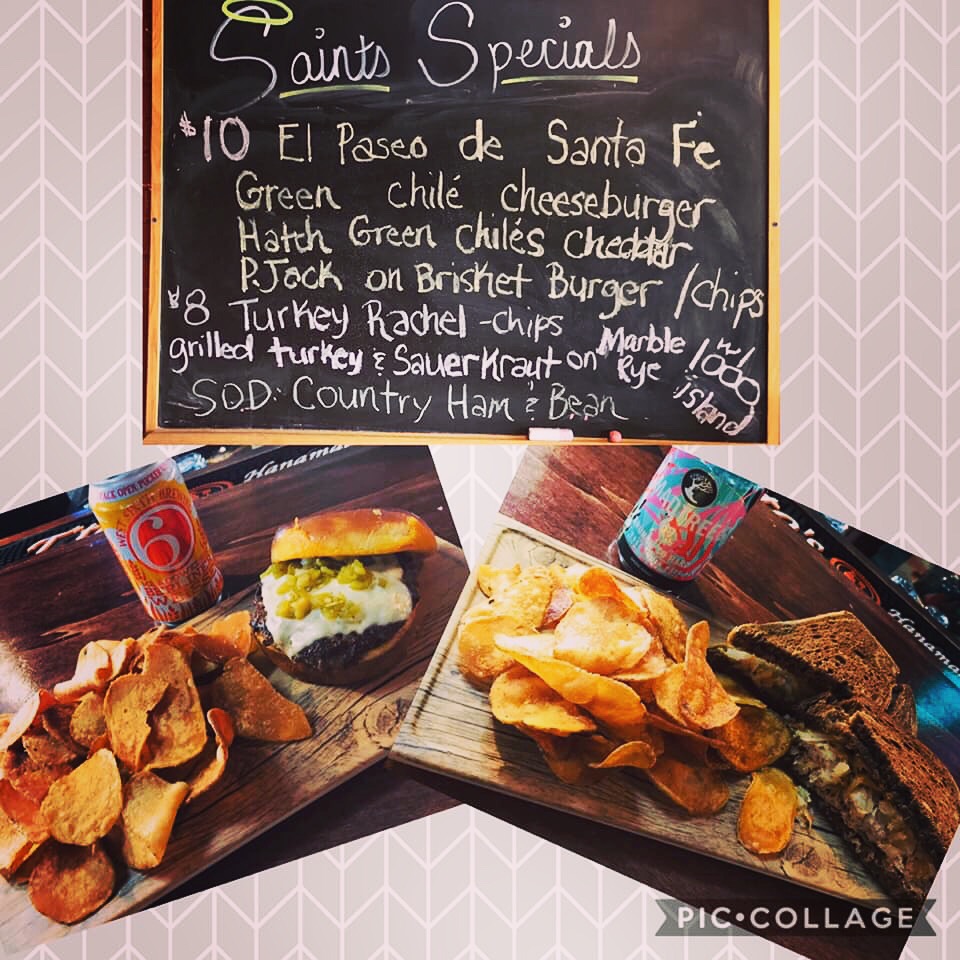 Saints Specials
$10 El Paseo de Santa Fe
Green chilé cheeseburger
Hatch Green Chilés Cheddar
P.Jack on Brisket Burger /chips
$8 Turkey Rachel -chips
grilled turkey & Sauerkraut on Marble Rye / w/ 1000 island
SOD: Country Ham & Bean
6
Hanama
Hanama
PIC•COLLAGE